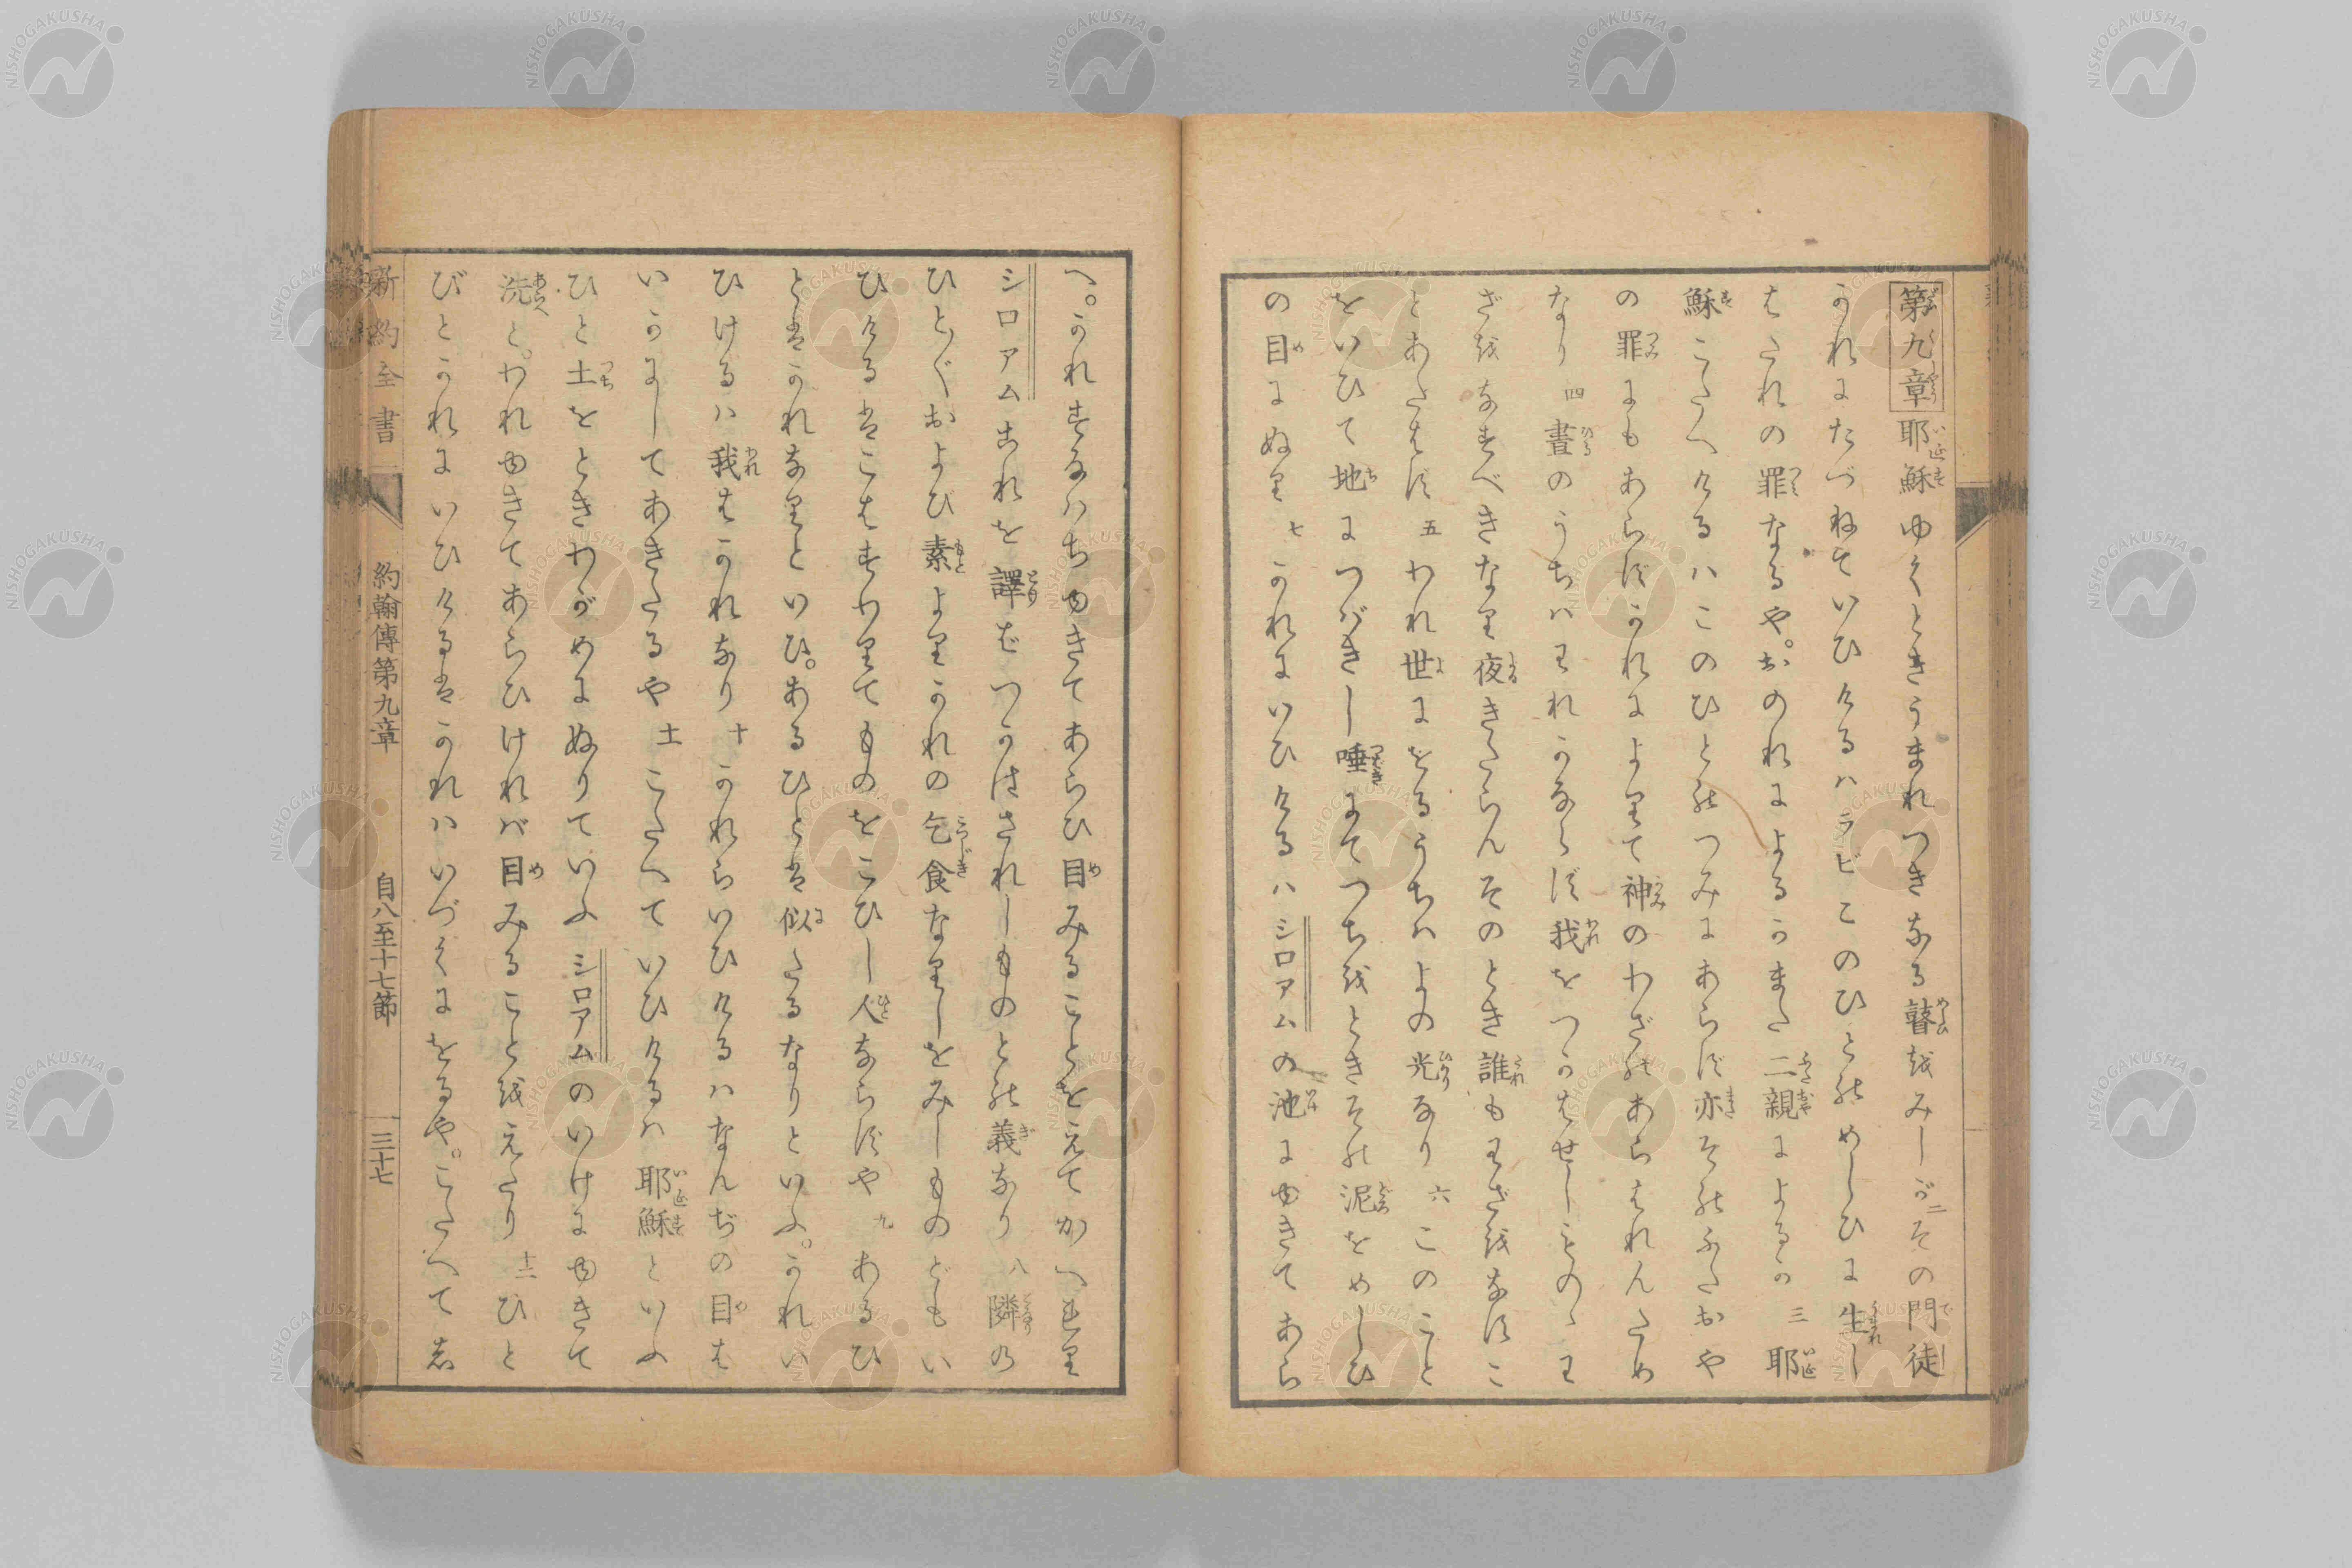 第九章 耶穌ゆくときうまれつきなる瞽をみしが 二 その門徒
かれにたづねていひけるハラビこのひとのめしひに生し
はたれの罪なるや。おのれによるかまた二親によるか 三 耶
穌こたへけるハこのひとのつみにあらず亦そのふたおや
の罪にもあらずかれによりて神のわざのあらはれんため
なり 四 晝のうちハわれかならず我をつかはせしものゝわ
ざをなすべきなり夜きたらんそのとき誰もわざをなすこ
とあたはず 五 われ世にをるうちハよの光なり 六 このこと
をいひて地につばきし唾にてつちをときその泥をめしひ
の目にぬり 七 かれにいひけるハシロアムの池にゆきてあら
へ。かれすなハちゆきてあらひ目みることをえてかへれり
シロアムこれを譯ばつかはされしものとの義なり 八 隣の
ひとゞおよび素よりかれの乞食なりしをみしものどもい
ひけるはこはすわりてものをこひし人ならずや 九 あるひ
とはかれなりといひ。あるひとは似たるなりといふ。かれい
ひけるハ我はかれなり 十 かれらいひけるハなんぢの目は
いかにしてあきたるや 十一 こたへていひけるハ耶穌といふ
ひと土をときわがめにぬりていふシロアムのいけにゆきて
洗へと。われゆきてあらひけれバ目みることをえたり 十二 ひと
びとかれにいひけるはかれハいづくにをるや。こたへて志
新約全書 約翰傳第九章 自八至十七節 三十七